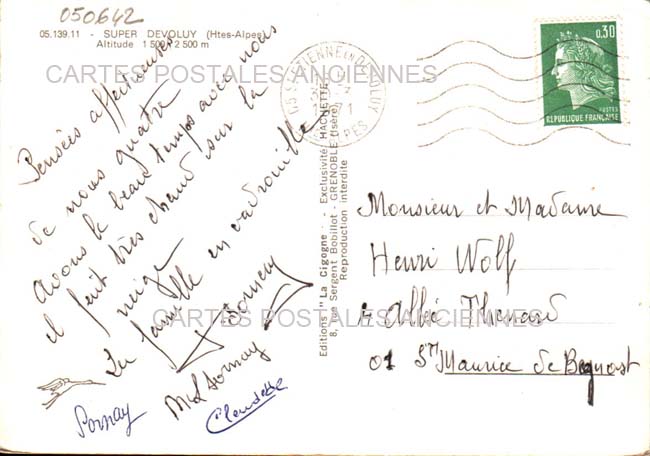 050.642
05.139.11 - SUPER DEVOLUY (Htes-Alpes)
Altitude 1 500 - 2 500 m
CARTES POSTALES ANCIENNES
Pensées affectueuses
de nous quatre
avons le beau temps avec nous
il fait très chaud sur la
neige
La famille en vadrouille
Sornay
MSornay
Sornay
Claudette
CARTES POSTALES ANCIENNES
Editions "La Cigogne" - Exclusivité HACHETTE
8, rue Sergent Bobillot - GRENOBLE (Isère)
Reproduction interdite
05 ST ETIENNE EN DEVOLUY
0,30
POSTES
REPUBLIQUE FRANÇAISE
Monsieur et Madame
Henri Wolf
Abbé Thenard
01 St Maurice de Beynost